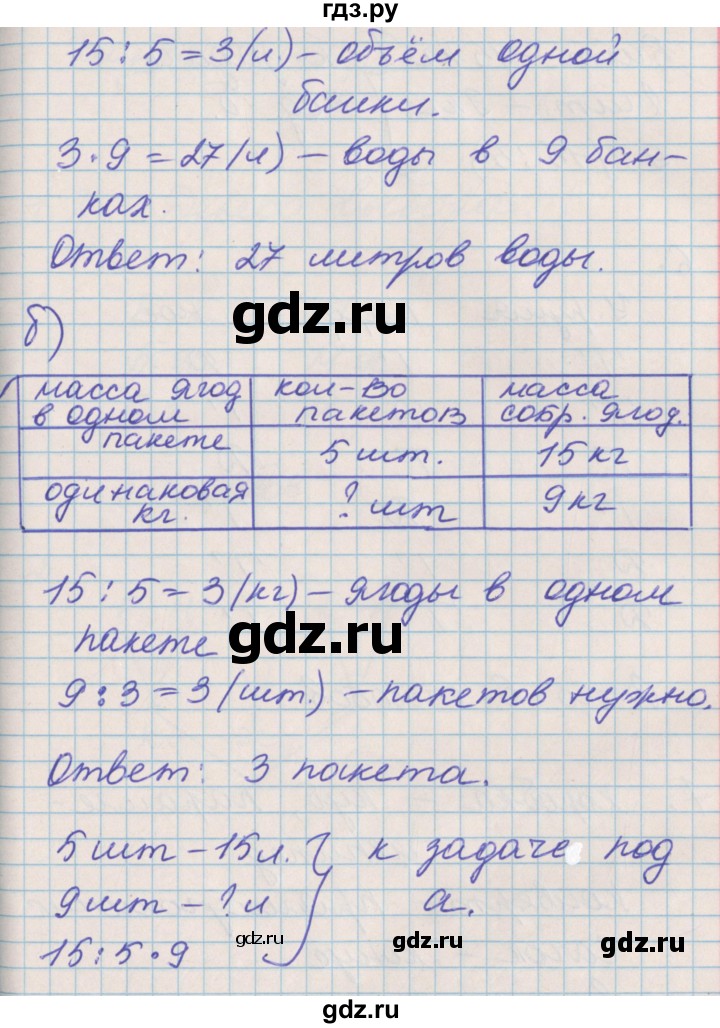 гдз.ру
15 : 5 = 3 (л) – объём одной
банки.
3 · 9 = 27 (л) – воды в 9 бан-
ках.
Ответ: 27 литров воды.
gdz.ru
б)
масса ягод в одном пакете | кол-во пакетов | масса собр. ягод.
5 шт. | 15 кг
одинаковая кг. | ? шт | 9 кг
15 : 5 = 3 (кг) – ягоды в одном
пакете
gdz.ru
9 : 3 = 3 (шт.) – пакетов нужно.
Ответ: 3 пакета.
5 шт – 15 л. } к задаче под
9 шт – ? л а.
15 : 5 · 9
gdz.ru
gdz.ru
gdz.ru
gdz.ru